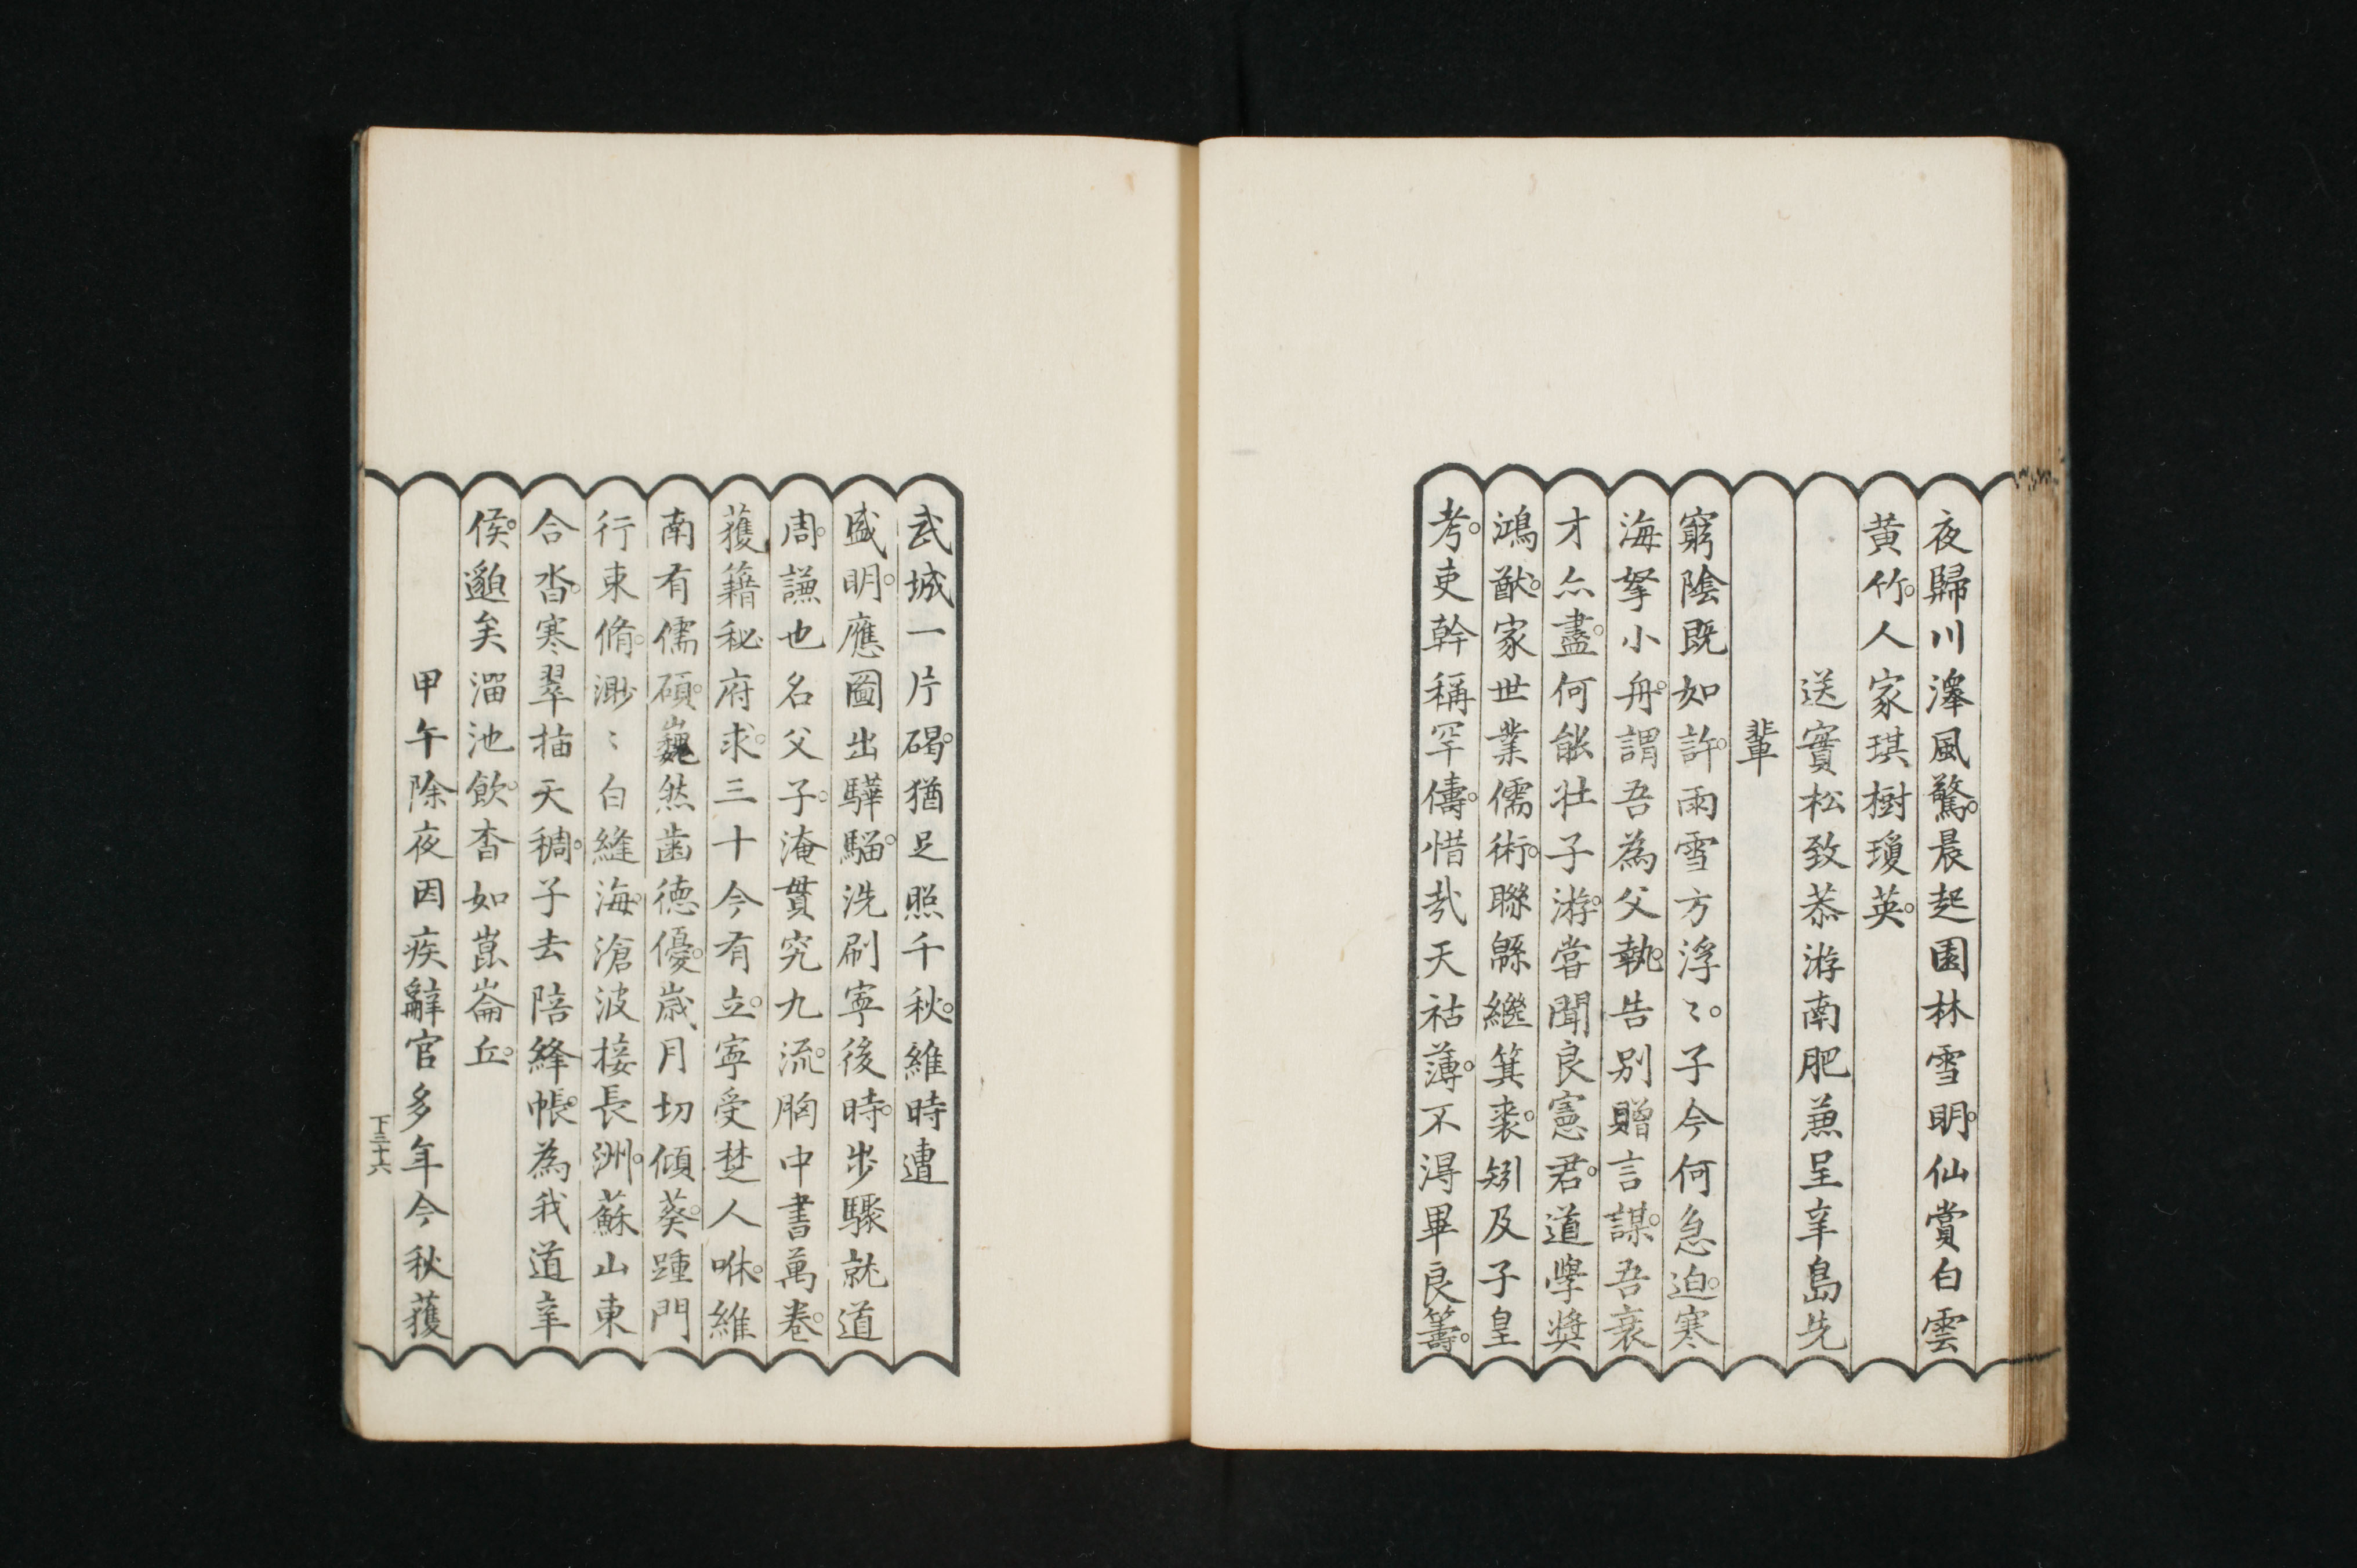 夜歸川澤風驚。晨起園林雪明。仙賞白雲
黄竹。人家琪樹瓊英。
送實松致恭游南肥兼呈辛島先
輩
窮陰既如許。雨雪方浮〻。子今何急迫。寒
海拏小舟。謂吾為父執。告别贈言謀。吾衰
才亦盡。何能壮子游。嘗聞良憲君。道學奬
鴻猷。家世業儒術。聯緜繼箕裘。矧及子皇
考。吏幹稱罕儔。惜哉天祜薄。不淂畢良籌。
武城一片碣。猶足照千秋。維時遭
盛明。應圖出驊騮。洗刷寧後時。步驟就道
周。謙也名父子。淹貫究九流。胸中書萬卷。
獲籍秘府求。三十今有立。寧受楚人咻。維
南有儒碩。巍然歯德優。歳月切傾葵。踵門
行束脩。渺〻白縫海。滄波接長洲。蘇山東
合沓。寒翠描天稠。子去陪絳帳。為我道辛
侯。邈矣溜池飲。杳如崑崙丘。
甲午除夜因疾辭官多年今秋獲
下三十六